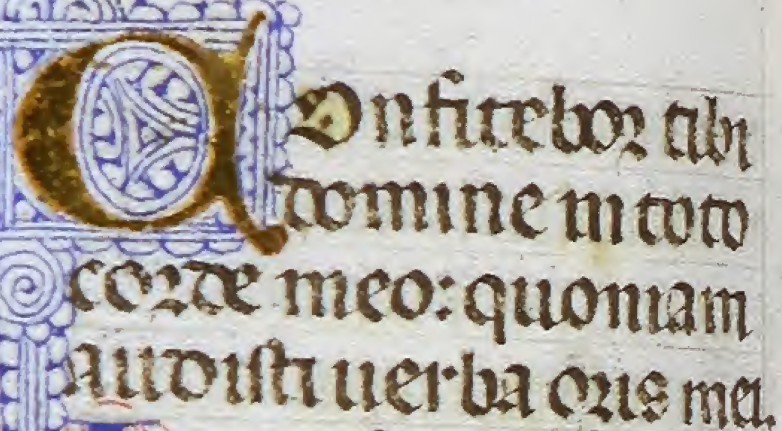 COnfitebor tibi
domine in toto
corde meo: quoniam
audisti uerba oris mei.